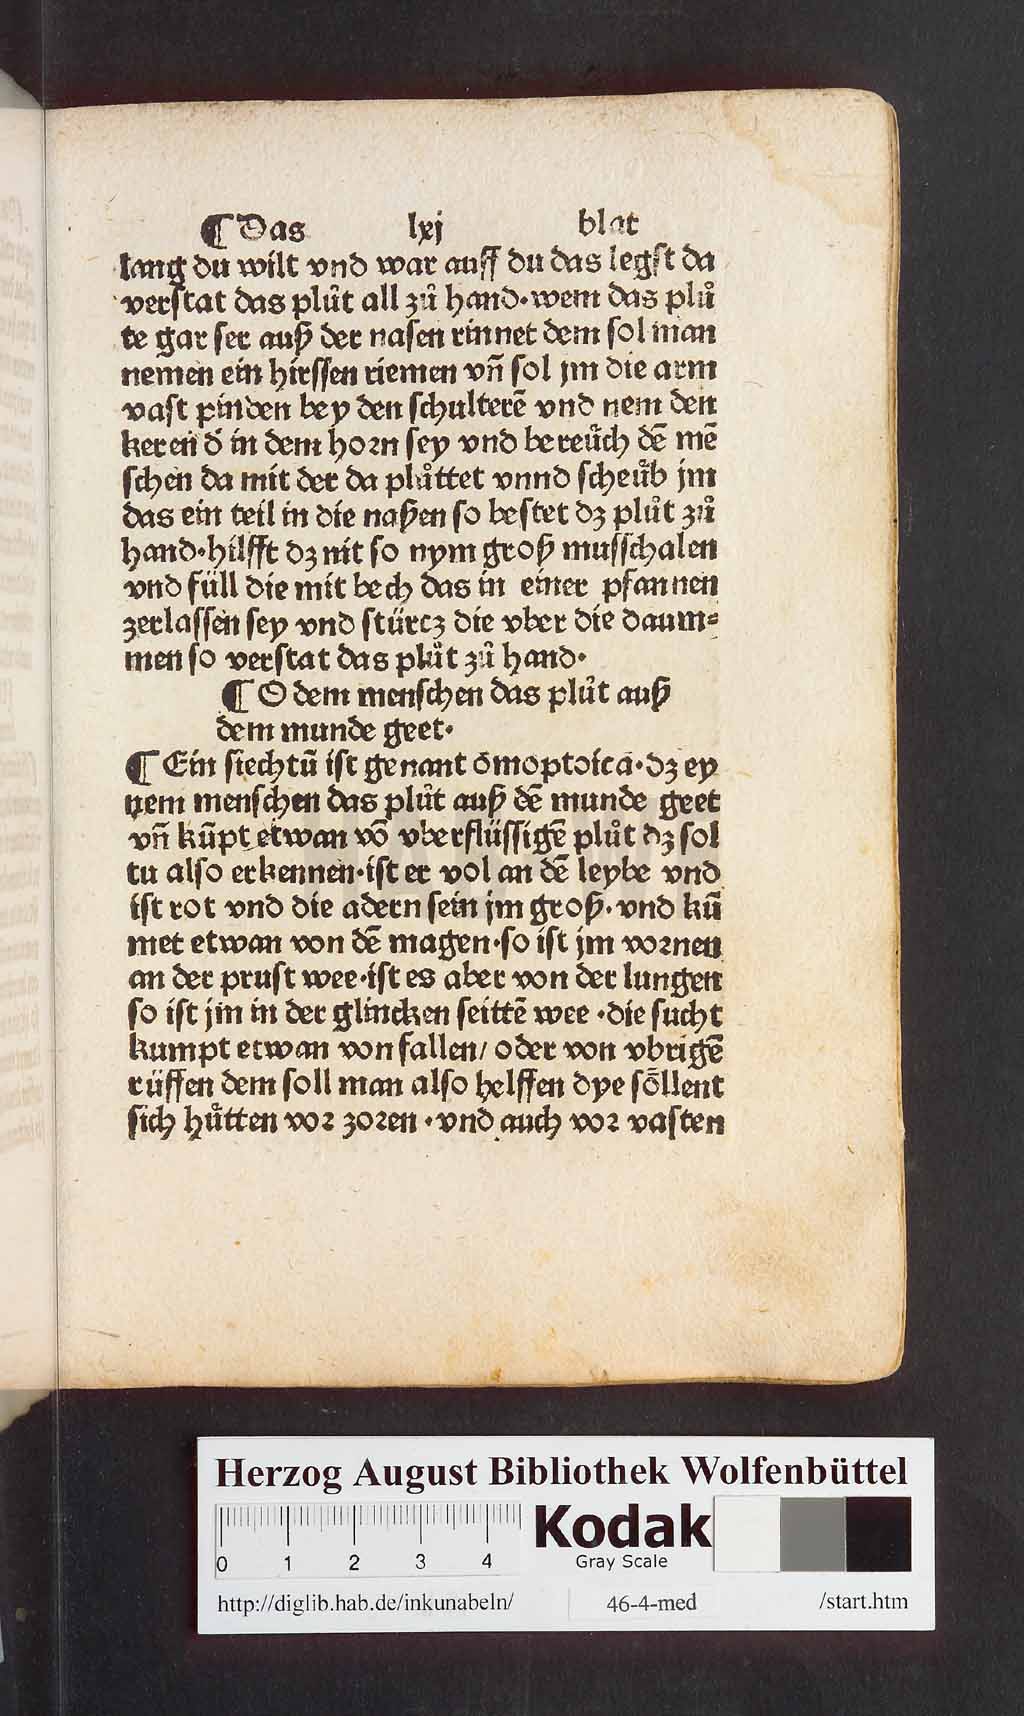 ¶ Das lxj blat
lang du wilt vnd war auff du das legst da
verstat das plůt all zů hand·wem das plů
te gar ser auß der nasen rinnet dem sol man
nemen ein hirssen riemen vñ sol jm die arm
vast pinden bey den schulterē vnd nem den
keren d' in dem horn sey vnd bereůch dē mē
schen da mit der da plůttet vnnd scheůb jm
das ein teil in die naßen so bestet dz plůt zů
hand·hilfft dz nit so nym groß musschalen
vnd füll die mit bech das in einer pfannen
zerlassen sey vnd stürcz die vber die daum⸗
men so verstat das plůt zů hand·
¶ O dem menschen das plůt auß
dem munde geet·
¶ Ein siechtū ist genant ōmoptoica·dz ey
nem menschen das plůt auß dē munde geet
vñ kūpt etwan vō vberflüssigē plůt dz sol
tu also erkennen·ist er vol an dē leybe vnd
ist rot vnd die adern sein jm groß·vnd kū
met etwan von dē magen·so ist jm vornen
an der prust wee·ist es aber von der lungen
so ist jm in der glincken seittē wee ·die sucht
kumpt etwan von fallen/ oder von vbrigē
rüffen dem soll man also helffen dye söllent
sich hůtten vor zoren ·vnd auch vor vasten
Herzog August Bibliothek Wolfenbüttel
0 1 2 3 4
Kodak
Gray Scale
http://diglib.hab.de/inkunabeln/ 46-4-med /start.htm